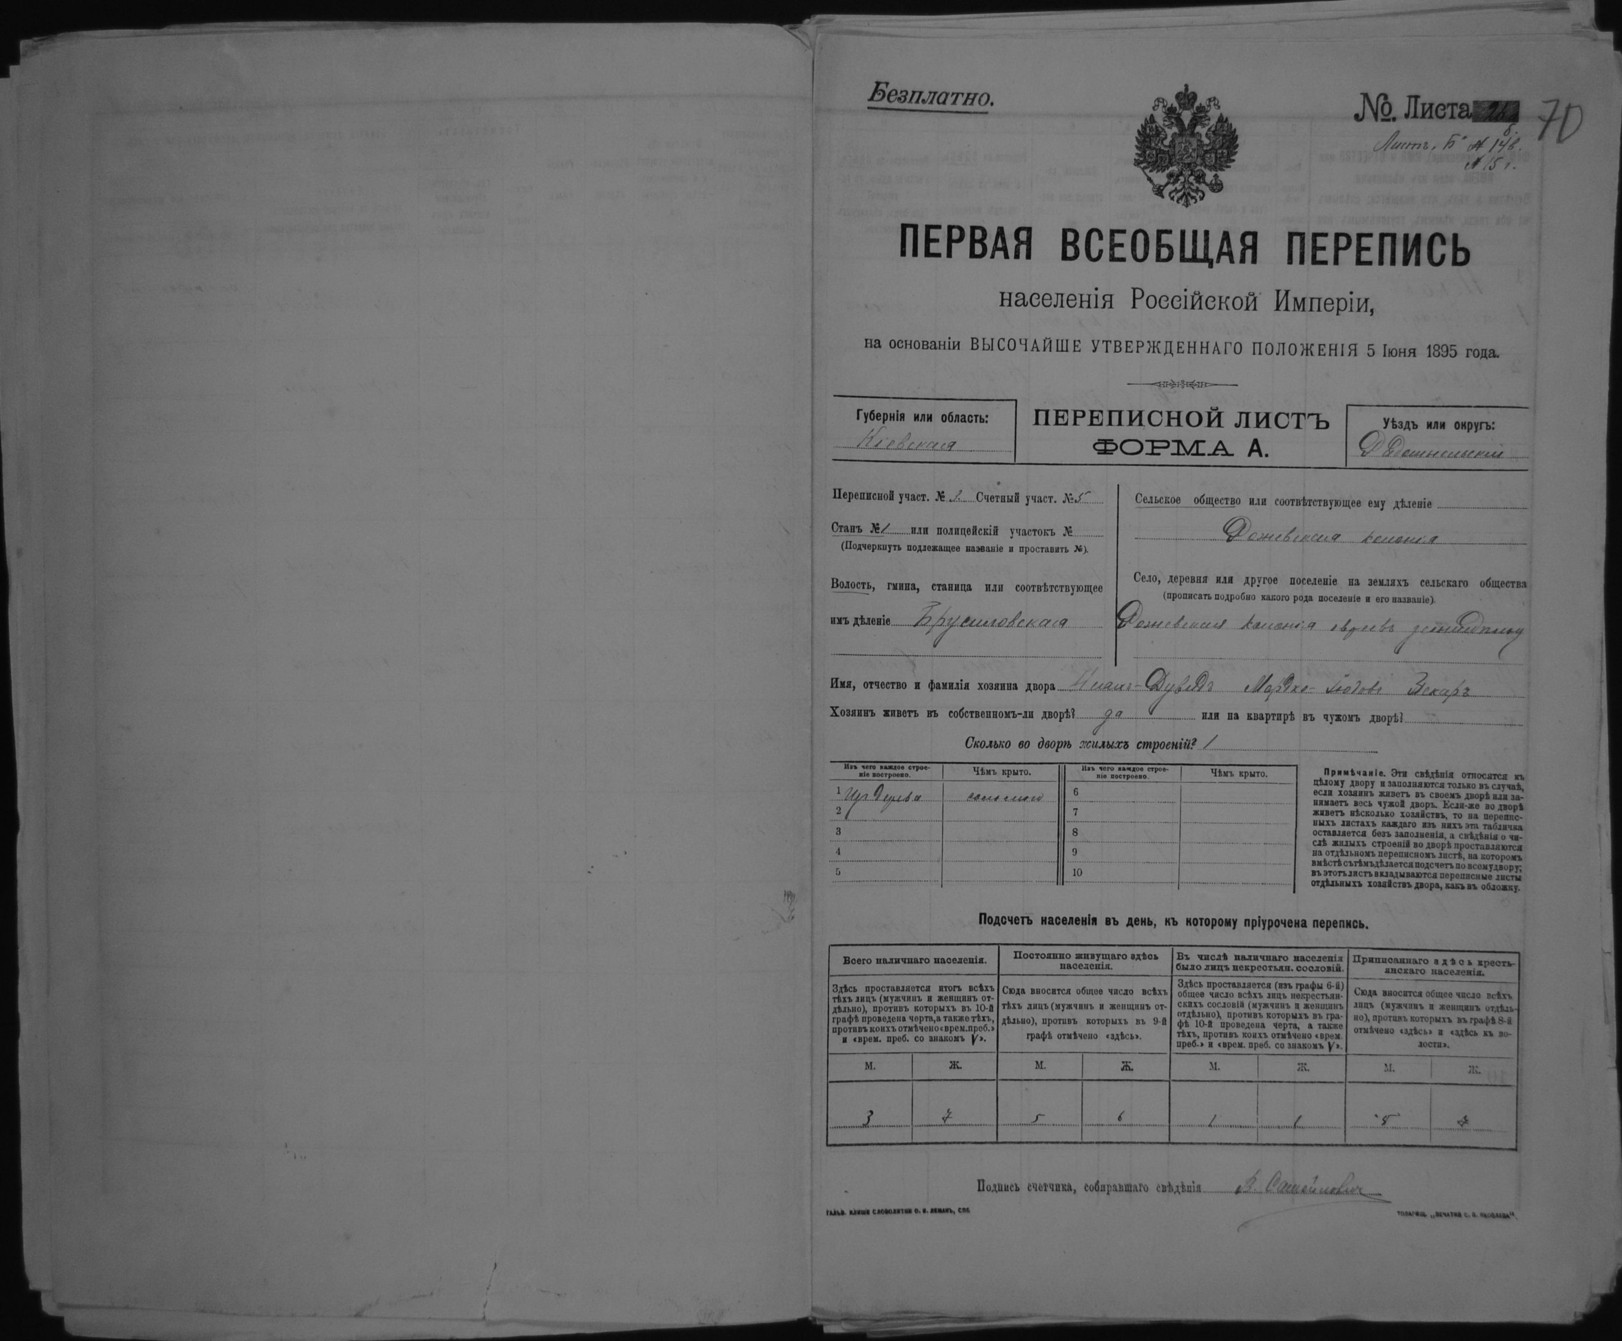 Безплатно.
№. Листа
70
Листъ „Б“
ПЕРВАЯ ВСЕОБЩАЯ ПЕРЕПИСЬ
населенія Россійской Имперіи,
на основаніи ВЫСОЧАЙШЕ УТВЕРЖДЕННАГО ПОЛОЖЕНІЯ 5 Іюня 1895 года.
Губернія или область:
Кіевская
ПЕРЕПИСНОЙ ЛИСТЪ
ФОРМА А.
Уѣздъ или округъ:
Переписной участ. № 2 Счетный участ. № 5
Станъ № 1 или полицейскій участокъ №
(Подчеркнуть подлежащее названіе и проставить №).
Волость, гмина, станица или соотвѣтствующее
имъ дѣленіе Брусиловская
Сельское общество или соотвѣтствующее ему дѣленіе
колонія
Село, деревня или другое поселеніе на земляхъ сельскаго общества
(прописать подробно какого рода поселеніе и его названіе).
колонія
Имя, отчество и фамилія хозяина двора
Хозяинъ живетъ въ собственномъ-ли дворѣ? да или на квартирѣ въ чужомъ дворѣ?
Сколько во дворѣ жилыхъ строеній? 1
Изъ чего каждое строе-
ніе построено.
Чѣмъ крыто.
Изъ чего каждое строе-
ніе построено.
Чѣмъ крыто.
1 Изъ дерева соломою
2
3
4
5
6
7
8
9
10
Примѣчаніе. Эти свѣдѣнія относятся къ
цѣлому двору и заполняются только въ случаѣ,
если хозяинъ живетъ въ своемъ дворѣ или за-
нимаетъ весь чужой дворъ. Если-же во дворѣ
живетъ нѣсколько хозяйствъ, то на перепис-
ныхъ листахъ каждаго изъ нихъ эта табличка
оставляется безъ заполненія, а свѣдѣнія о чи-
слѣ жилыхъ строеній во дворѣ проставляются
на отдѣльномъ переписномъ листѣ, на которомъ
вмѣстѣ съ тѣмъ дѣлается подсчетъ по всему двору;
въ этотъ листъ вкладываются переписные листы
отдѣльныхъ хозяйствъ двора, какъ въ обложку.
Подсчетъ населенія въ день, къ которому пріурочена перепись.
Всего наличнаго населенія.
Здѣсь проставляется итогъ всѣхъ
тѣхъ лицъ (мужчинъ и женщинъ от-
дѣльно), противъ которыхъ въ 10-й
графѣ проведена черта, а также тѣхъ,
противъ коихъ отмѣчено «врем. преб.»
и «врем. преб. со знакомъ V».
Постоянно живущаго здѣсь
населенія.
Сюда вносится общее число всѣхъ
тѣхъ лицъ (мужчинъ и женщинъ от-
дѣльно), противъ которыхъ въ 9-й
графѣ отмѣчено «здѣсь».
Въ числѣ наличнаго населенія
было лицъ некрестьян. сословій.
Здѣсь проставляется (изъ графы 6-й)
общее число всѣхъ лицъ некрестьян-
скихъ сословій (мужчинъ и женщинъ
отдѣльно), противъ которыхъ въ гра-
фѣ 10-й проведена черта, а также
тѣхъ, противъ коихъ отмѣчено «врем.
преб.» и «врем. преб. со знакомъ V».
Приписаннаго здѣсь кресть-
янскаго населенія.
Сюда вносится общее число всѣхъ
лицъ (мужчинъ и женщинъ отдѣль-
но), противъ которыхъ въ графѣ 8-й
отмѣчено «здѣсь» и «здѣсь въ во-
лости».
М. Ж. М. Ж. М. Ж. М. Ж.
3 7 5 6 1 1 5 7
Подпись счетчика, собиравшаго свѣдѣнія